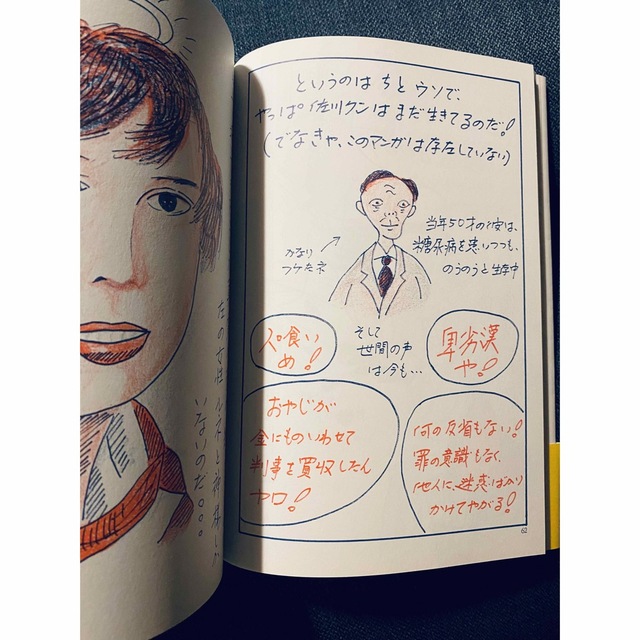 というのはちとウソで、
やっぱ佐川クンはまだ生きてるのだ!
(でなきゃ、このマンガは存在していない)
かなり
フケたネ
当年50才の彼は、
糖尿病を患いつつも、
のうのうと生存中
人喰い
め!
そして
世間の声
は今も…
卑劣漢
や!
おやじが
金にものいわせて
判事を買収したん
ヤロ!
何の反省もない!
罪の意識もなく、
他人に、迷惑ばかり
かけてやがる!
62
左の女性ルネと神様し
いないのだ。。。